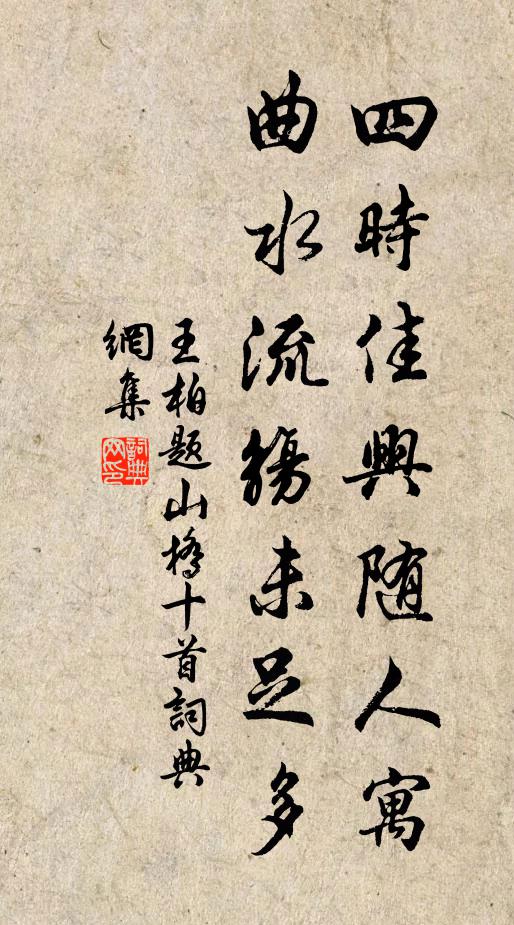 四時佳興随人寓
曲水流觴未足多
王柏題山橋十首詞典
網集
詞典
网印